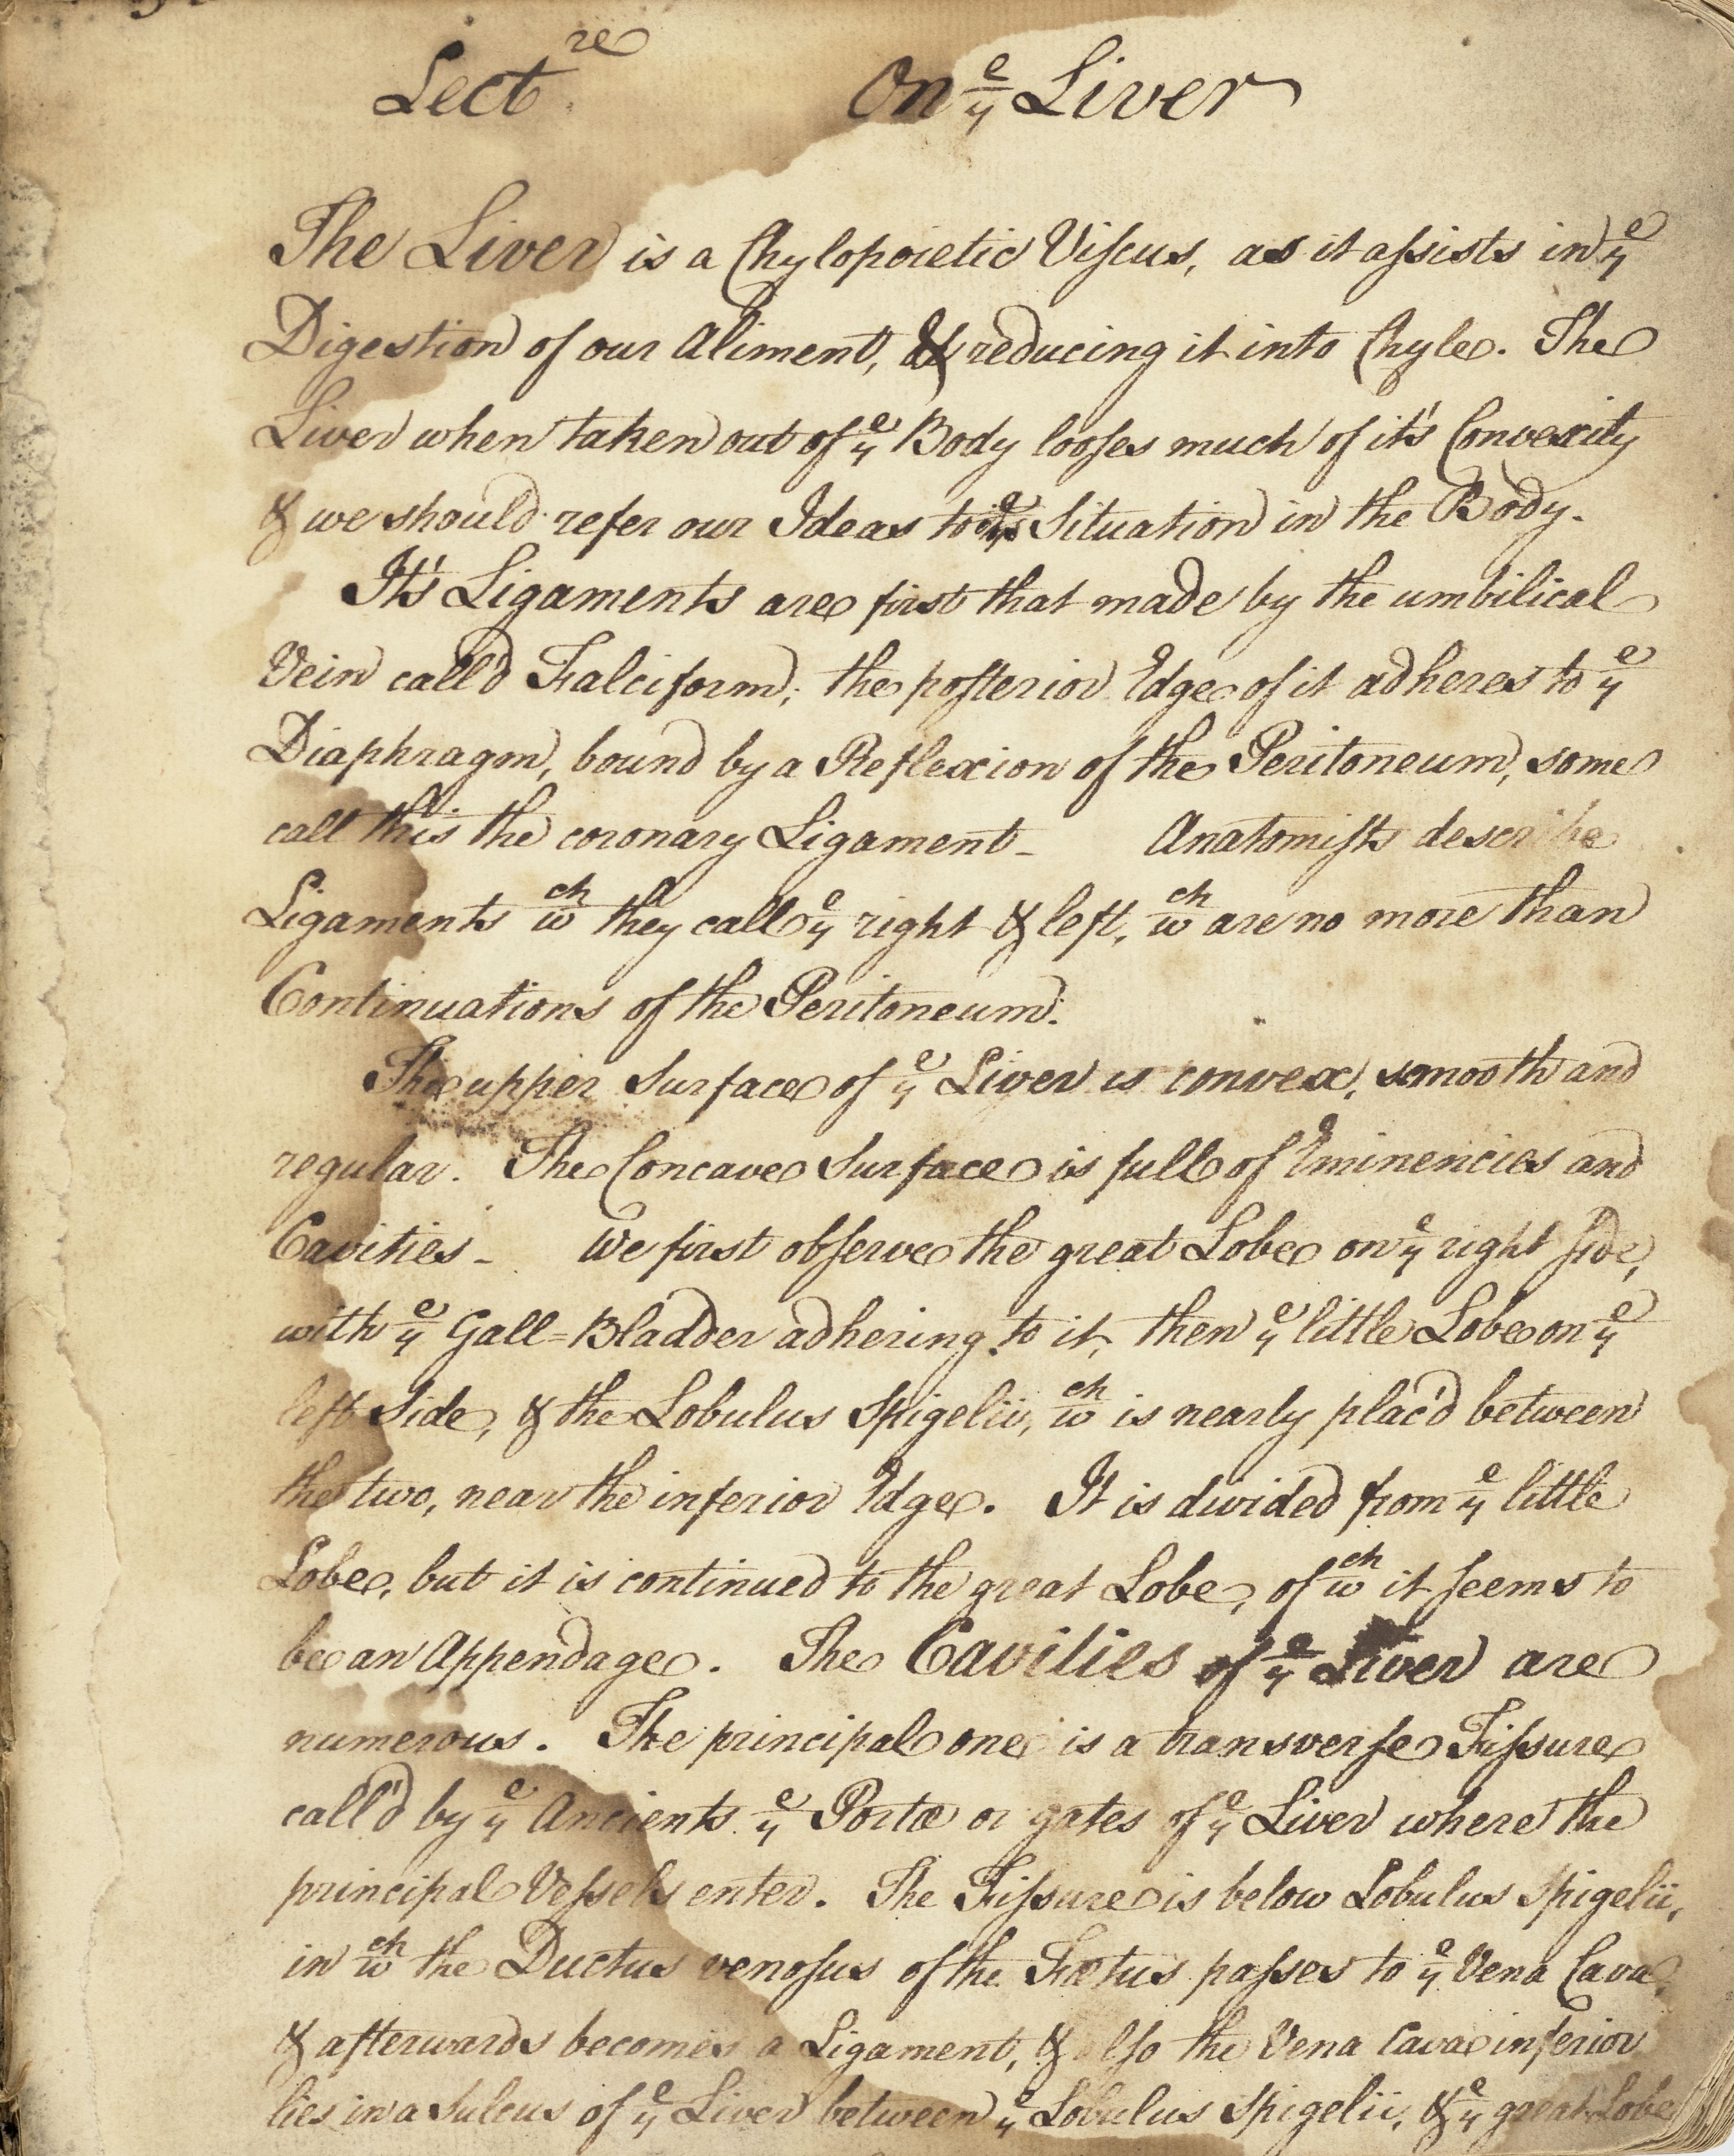 Lectre On ye Liver
The Liver is a Chylopoietic Viscus, as it assists in ye
Digestion of our Aliment, & reducing it into Chyle. The
Liver when taken out of ye Body looses much of it's Convexity
& we should refer our Ideas to its Situation in the Body.
It's Ligaments are first that made by the umbilical
Vein call'd Falciform; the posterior Edge of it adheres to ye
Diaphragm, bound by a Reflexion of the Peritoneum, some
call this the coronary Ligament - Anatomists describe
Ligaments wch they call ye right & left, wch are no more than
Continuations of the Peritoneum.
The upper Surface of ye Liver is convex, smooth and
regular. The Concave Surface is full of Eminencies and
Cavities - We first observe the great Lobe on ye right side,
with ye Gall=Bladder adhering to it, then ye little Lobe on ye
left Side, & the Lobulus Spigelii, wch is nearly plac'd between
the two, near the inferior Edge. It is divided from ye little
Lobe, but it is continued to the great Lobe, of wch it seems to
be an Appendage. The Cavities of ye Liver are
numerous. The principal one is a transverse Fissure
call'd by ye Ancients ye Portæ or gates of ye Liver where the
principal Vessels enter. The Fissure is below Lobulus Spigelii,
in wch the Ductus venosus of the Fœtus passes to ye Vena Cava,
& afterwards becomes a Ligament, & also the Vena Cava inferior
lies in a Sulcus of ye Liver between ye Lobulus Spigelii, & ye great Lobe